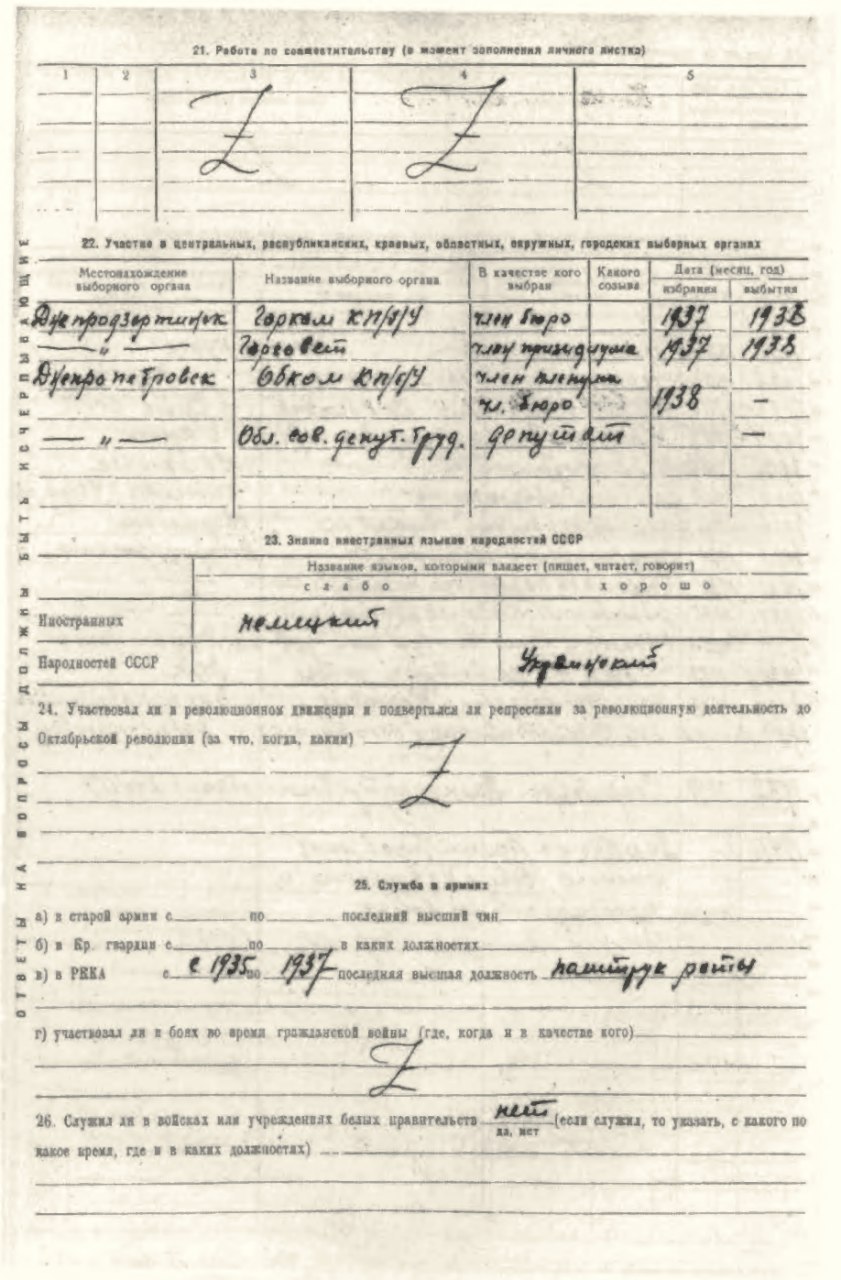 21. Работа по совместительству (в момент заполнения личного листка)
1 2 3 4 5
Z Z
22. Участие в центральных, республиканских, краевых, областных, окружных, городских выборных органах
Местонахождение выборного органа Название выборного органа В качестве кого выбран Какого созыва Дата (месяц, год)
избрания выбытия
Днепродзержинск Горком КП/б/У член бюро 1937 1938
— " — Горсовет член президиума 1937 1938
Днепропетровск Обком КП/б/У член пленума
чл. бюро 1938 —
— " — Обл. сов. депут. труд. депутат —
23. Знание иностранных языков народностей СССР
Название языков, которыми владеет (пишет, читает, говорит)
слабо хорошо
Иностранных немецкий
Народностей СССР Украинский
24. Участвовал ли в революционном движении и подвергался ли репрессиям за революционную деятельность до
Октябрьской революции (за что, когда, каким)
Z
25. Служба в армиях
а) в старой армии с по последний высший чин
б) в Кр. гвардии с по в каких должностях
в) в РККА с с 1935 по 1937 последняя высшая должность политрук роты
г) участвовал ли в боях во время гражданской войны (где, когда и в качестве кого)
Z
26. Служил ли в войсках или учреждениях белых правительств нет (если служил, то указать, с какого по
да, нет
какое время, где и в каких должностях)
ОТВЕТЫ НА ВОПРОСЫ ДОЛЖНЫ БЫТЬ ИСЧЕРПЫВАЮЩИЕ